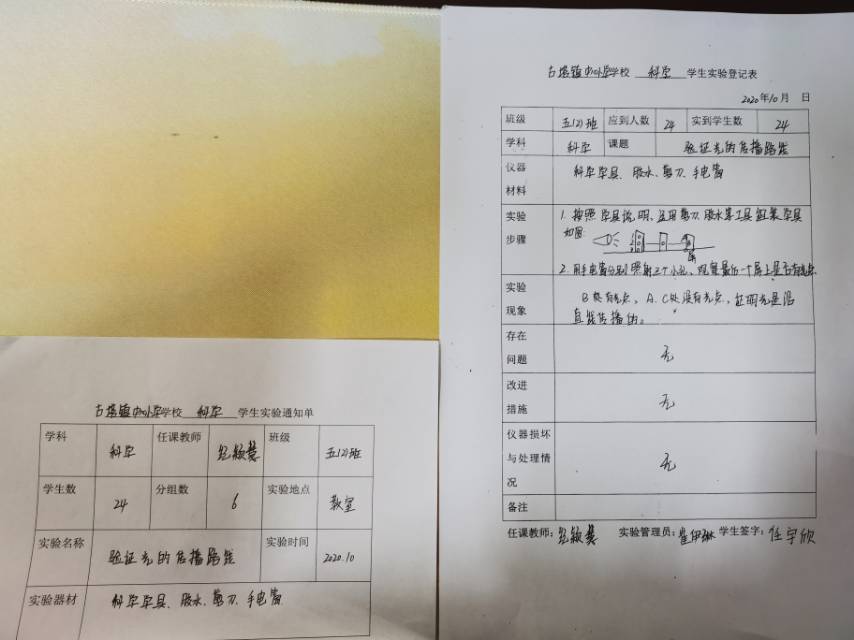 古塔镇中心小学学校 科学 学生实验登记表
2020年10月 日
班级 五(2)班 应到人数 24 实到学生数 24
学科 科学 课题 验证光的传播路线
仪器材料 科学学具、胶水、剪刀、手电筒
实验步骤 1.按照学具说明,运用剪刀、胶水等工具组装学具
如图
2.用手电筒分别照射三个小孔,观察最后一个屏上是否有光点
实验现象 B处有光点,A、C处没有光点,证明光是沿
直线传播的。
存在问题 无
改进措施 无
仪器损坏与处理情况 无
备注
任课教师: 实验管理员:崔伊琳 学生签字:任宇欣
古塔镇中心小学学校 科学 学生实验通知单
学科 科学 任课教师 班级 五(2)班
学生数 24 分组数 6 实验地点 教室
实验名称 验证光的传播路线 实验时间 2020.10
实验器材 科学学具、胶水、剪刀、手电筒